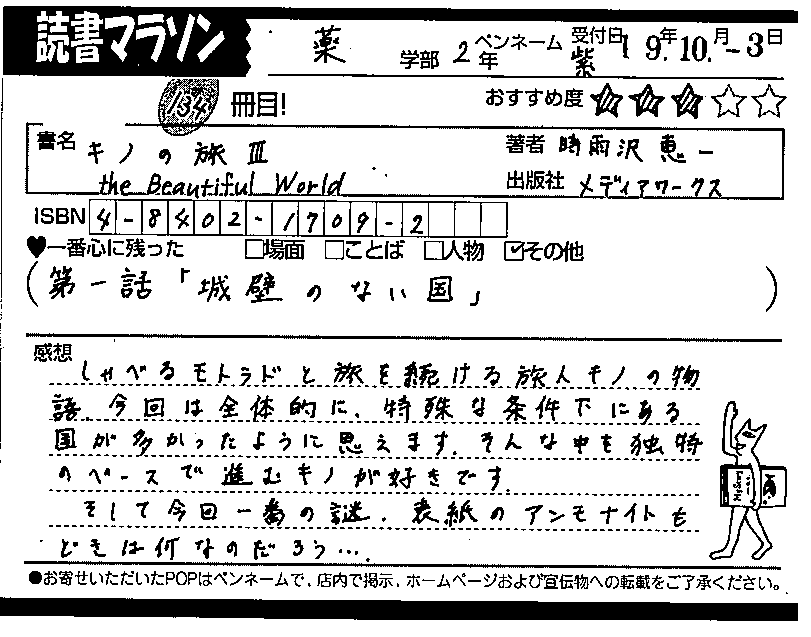 読書マラソン
薬 学部 2年 ペンネーム 紫 受付日 19年10月-3日
134 冊目! おすすめ度 ★★★☆☆
書名 キノの旅 III 著者 時雨沢 恵一
the Beautiful World 出版社 メディアワークス
ISBN 4-8402-1709-2
♥一番心に残った □場面 □ことば □人物 ☑その他
(第一話「城壁のない国」)
感想
しゃべるモトラドと旅を続ける旅人キノの物
語。今回は全体的に、特殊な条件下にある
国が多かったように思えます。そんな中を独特
のペースで進むキノが好きです。
そして今回一番の謎。表紙のアンモナイトも
どきは何なのだろう….
●お寄せいただいたPOPはペンネームで、店内で掲示、ホームページおよび宣伝物への転載をご了承ください。